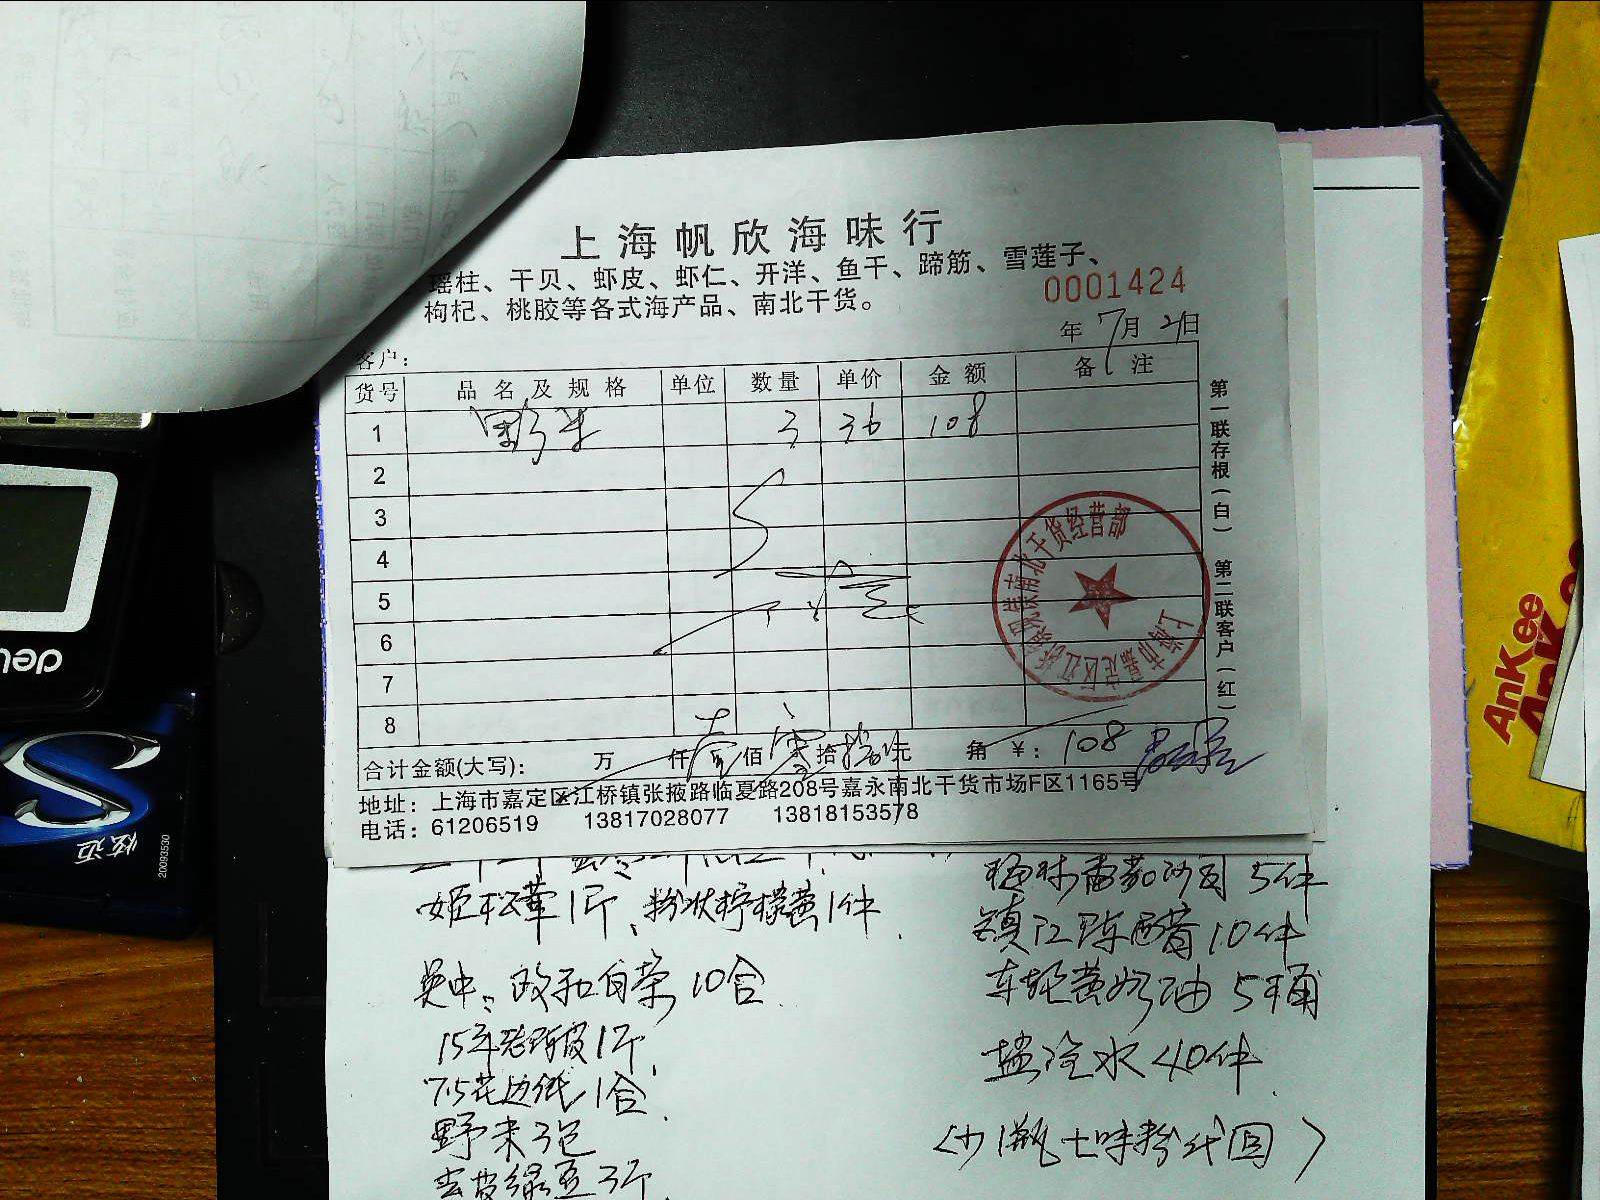 上海帆欣海味行
瑶柱、干贝、虾皮、虾仁、开洋、鱼干、蹄筋、雪莲子、
枸杞、桃胶等各式海产品、南北干货。
0001424
年 7月 21日
客户：
货号 品名及规格 单位 数量 单价 金额 备注
1 野米 3 36 108
2
3
4
5
6
7
8
合计金额(大写)： 万 仟 壹 佰 零 拾 捌 元 角 ¥：108
地址：上海市嘉定区江桥镇张掖路临夏路208号嘉永南北干货市场F区1165号
电话：61206519 13817028077 13818153578
第一联存根(白) 第二联客户(红)
南北干货经营部
上海市嘉定区江桥
姬松茸1斤、粉状柠檬黄1件
吴中：政和白茶10合
15年老陈皮1斤
7.5花边纸1合
野米3包
去皮绿豆3斤
梅林番茄沙司5件
镇江陈醋10件
车轮黄奶油5桶
盐汽水40件
(少1瓶七味粉找回)
deli
炫迈
20093530
AnKee
AnKee